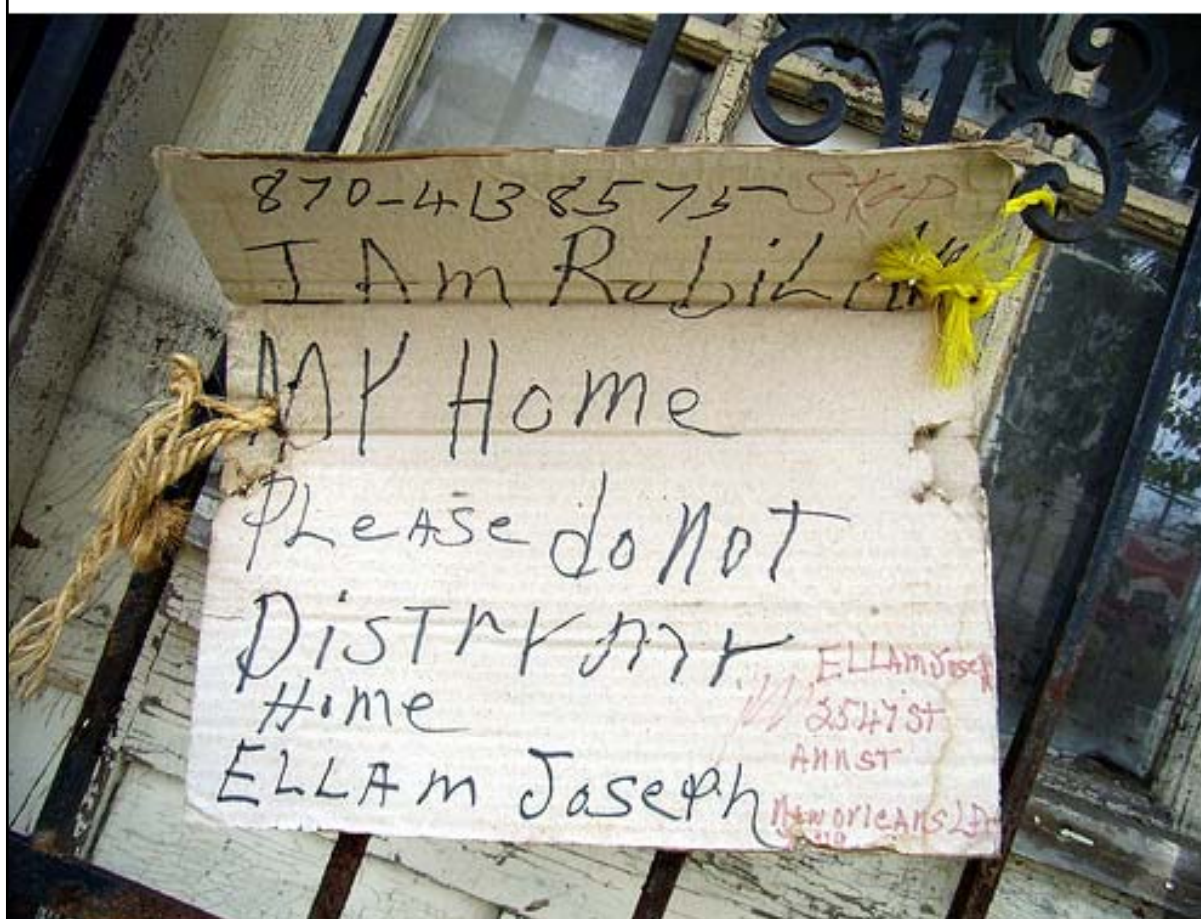 870-4138575 Stop
I Am
My Home
PLeASe do NoT
DisTry my
Home
ELLAm JosePh
ELLAmJoseph
2547 ST
ANN ST
New orleans LA